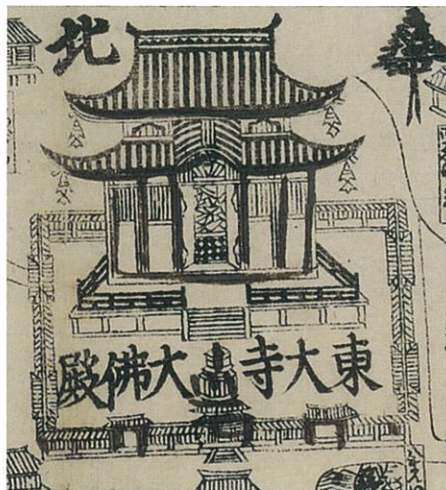 北
東大寺大佛殿